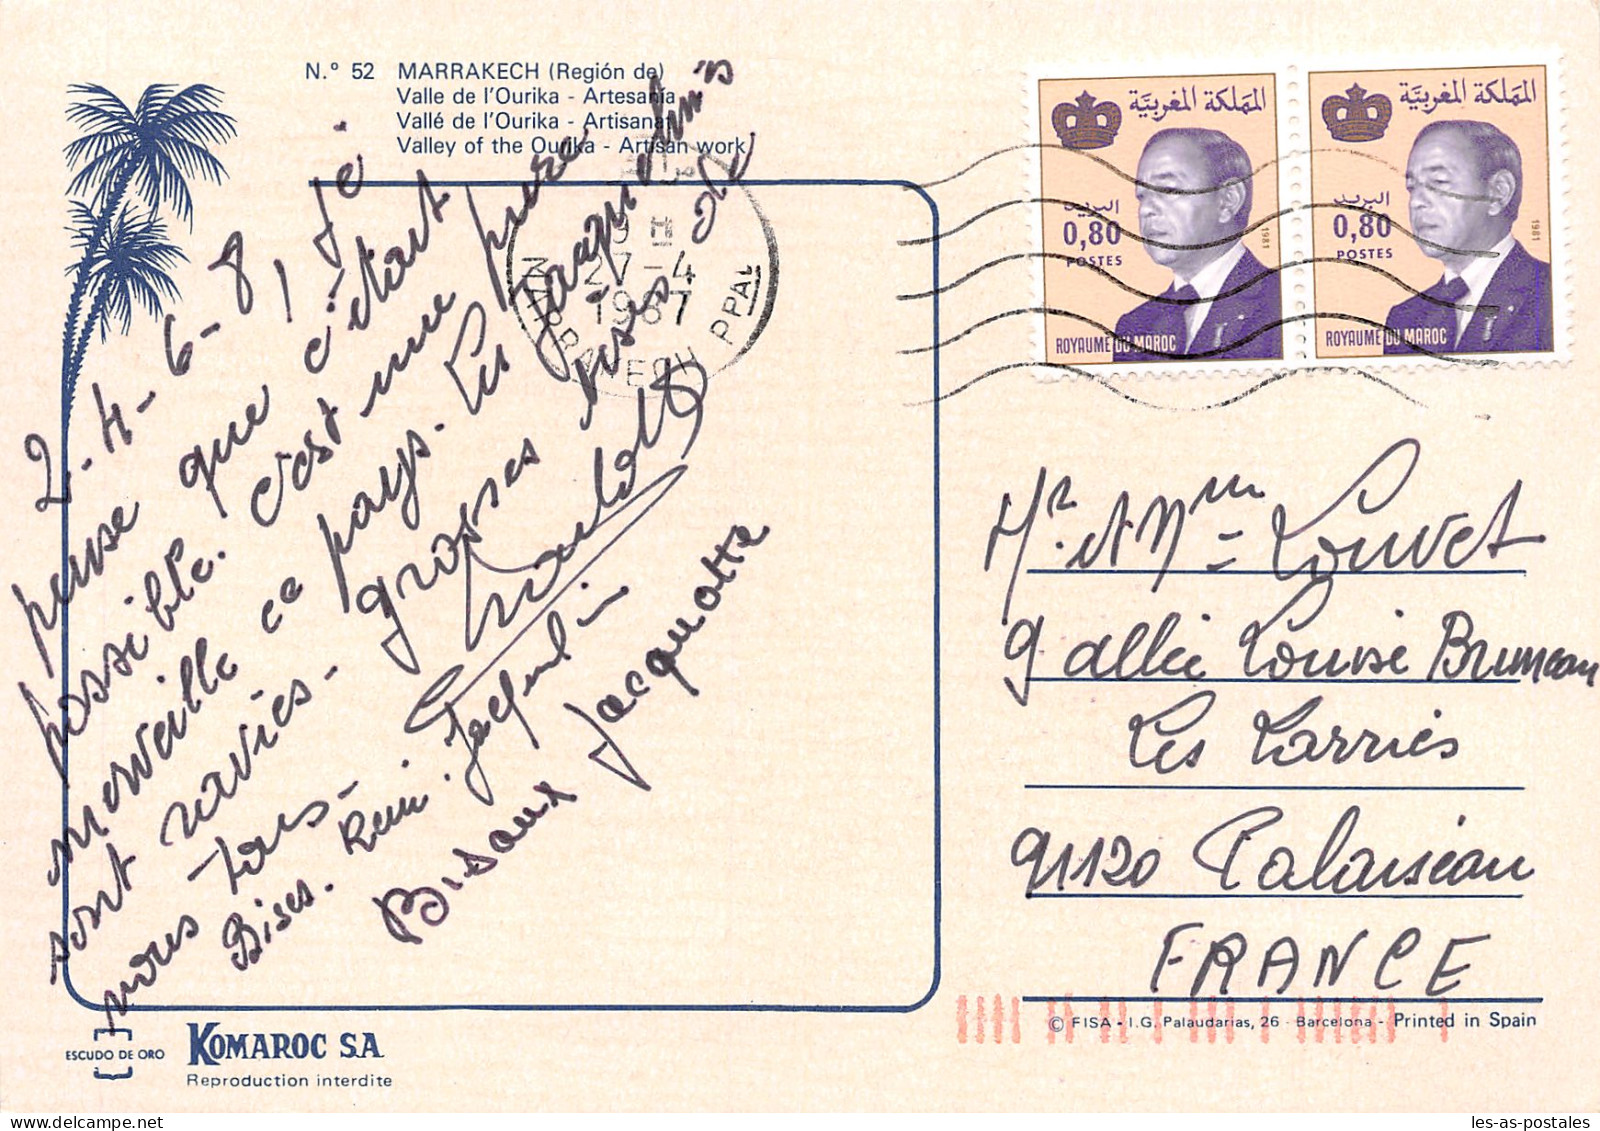 N.° 52 MARRAKECH (Región de)
Valle de l'Ourika - Artesanía
Vallé de l'Ourika - Artisanat
Valley of the Ourika - Artisan work
المملكة المغربية
البريد
0,80
POSTES
1981
ROYAUME DU MAROC
المملكة المغربية
البريد
0,80
POSTES
1981
ROYAUME DU MAROC
27-4
1987
MARRAKECH PPAL
2-4-6-8, je
pense que c'était
possible. C'est une pure
merveille ce pays. Les
sont ravies. grosses bises de
nous tous.
Bises. Rémi. Jacqueline
Bisoux Jacquotte
Mr. et Mme Louvet
9 allée Louise Bruneau
Les Larris
91120 Palaiseau
FRANCE
ESCUDO DE ORO
KOMAROC S.A.
Reproduction interdite
© FISA - I.G. Palaudarias, 26 - Barcelona - Printed in Spain
les-as-postales